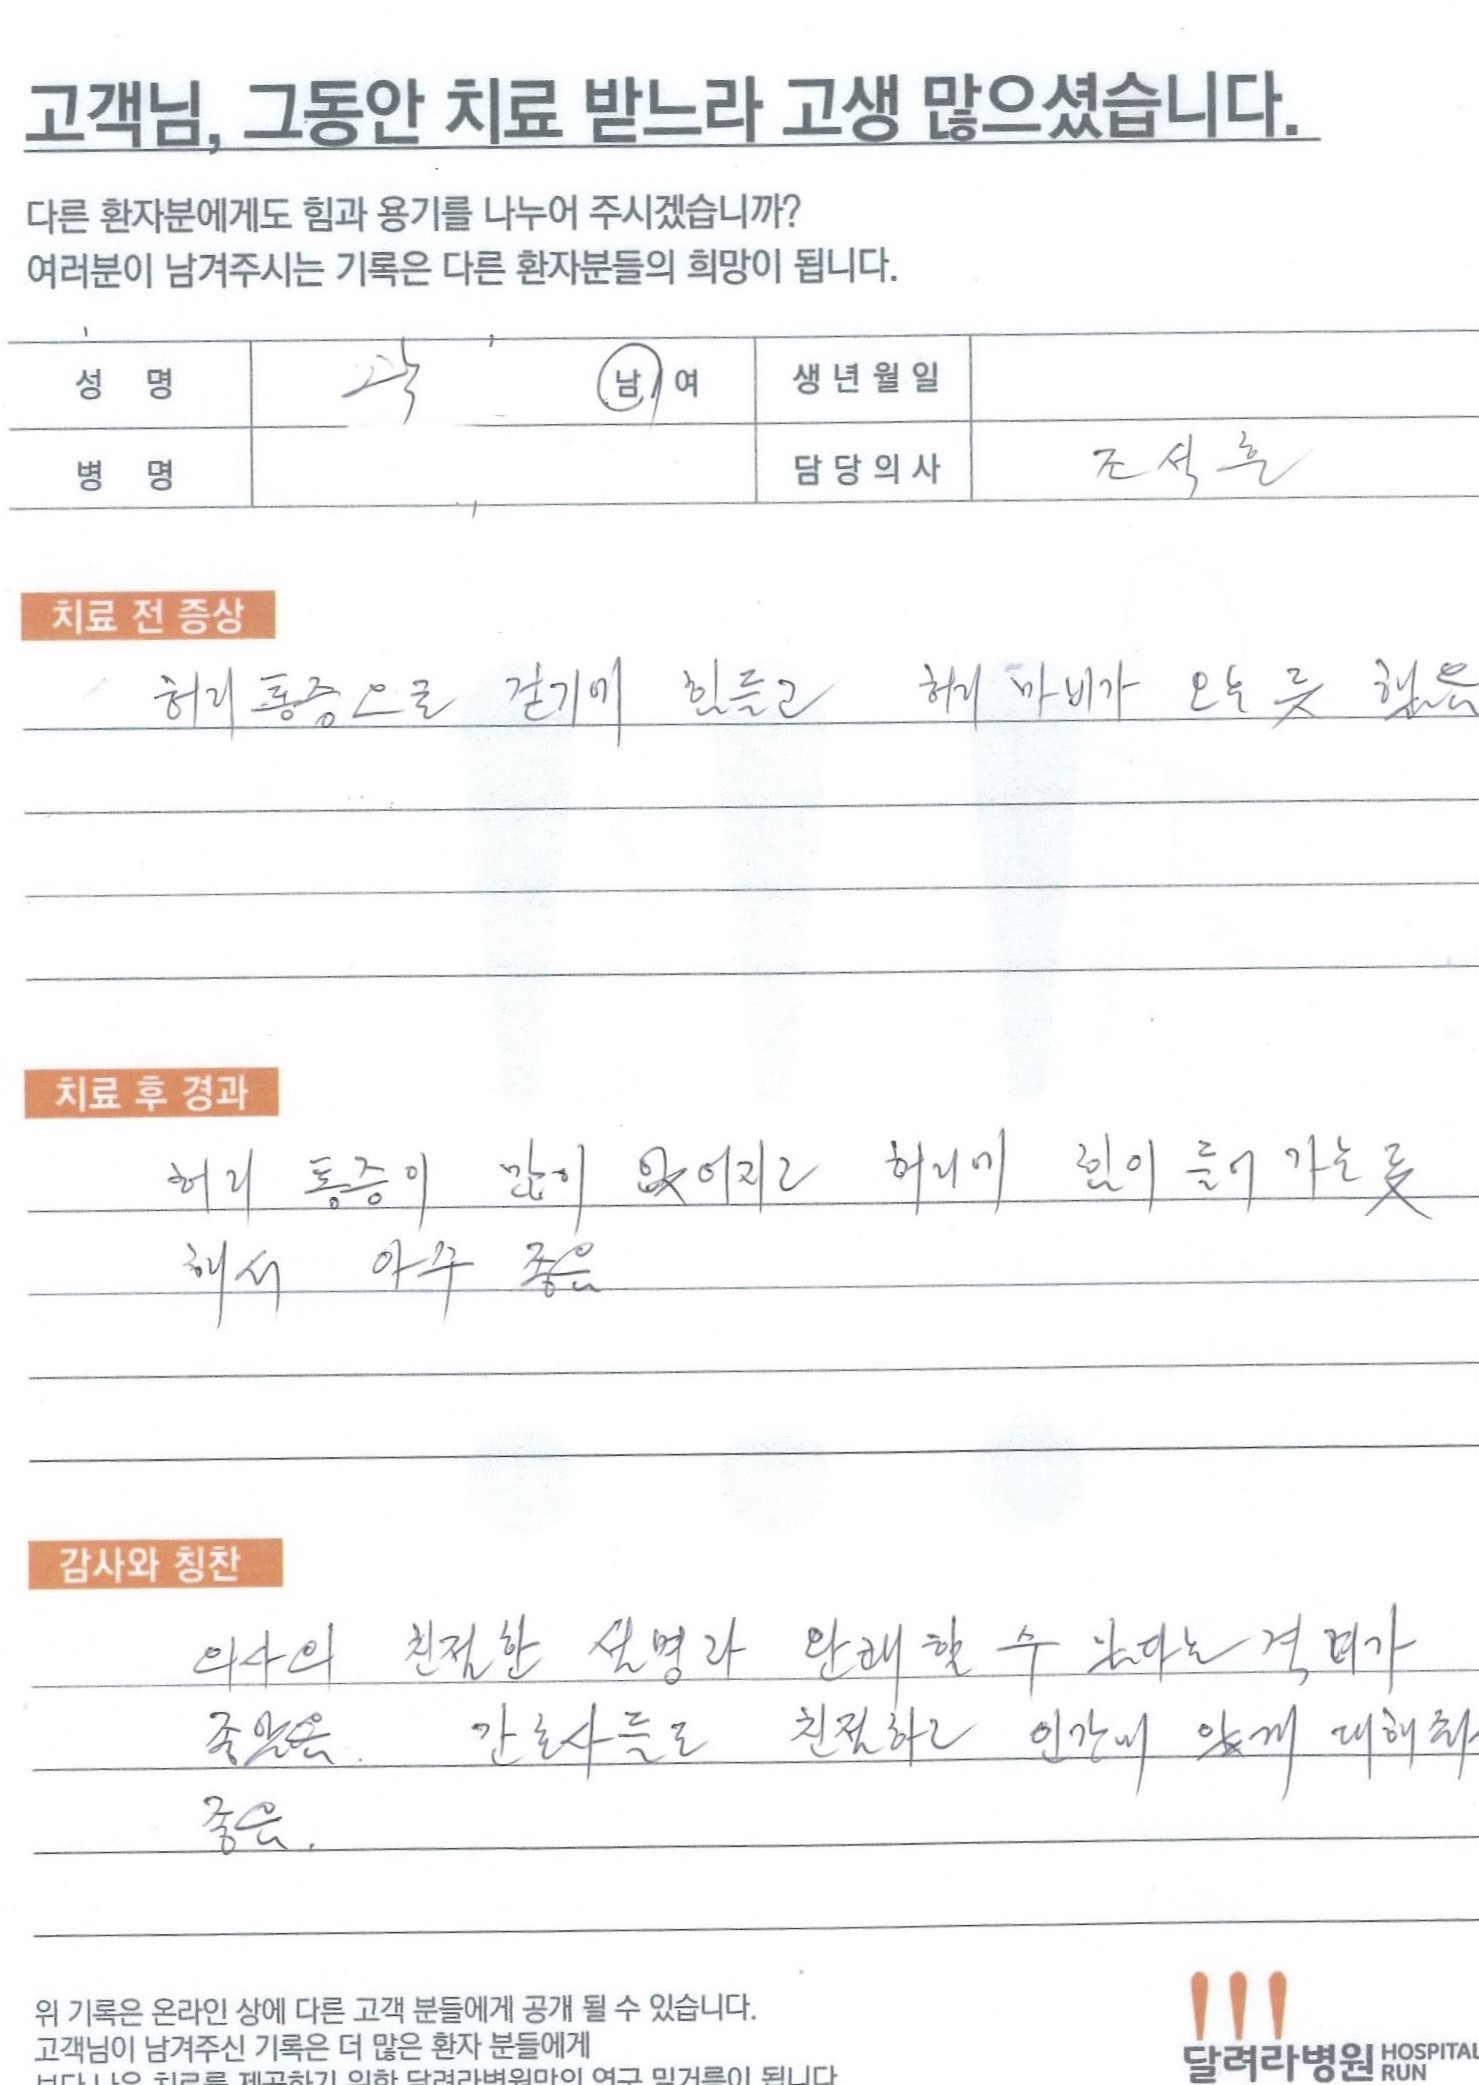 고객님, 그동안 치료 받느라 고생 많으셨습니다.
다른 환자분에게도 힘과 용기를 나누어 주시겠습니까?
여러분이 남겨주시는 기록은 다른 환자분들의 희망이 됩니다.
성 명 곽 남/여 생년월일
병 명 담당의사 조석훈
치료 전 증상
허리 통증으로 걷기에 힘들고 허리 마비가 오는 듯 했음
치료 후 경과
허리 통증이 많이 없어지고 허리에 힘이 들어 가는 듯
해서 아주 좋음
감사와 칭찬
의사의 친절한 설명과 완쾌할 수 있다는 격려가
좋았음. 간호사들도 친절하고 인간미 있게 대해줘
좋음.
위 기록은 온라인 상에 다른 고객 분들에게 공개 될 수 있습니다.
고객님이 남겨주신 기록은 더 많은 환자 분들에게
보다 나은 치료를 제공하기 위한 달려라병원만의 연구 밑거름이 됩니다
달려라병원 HOSPITAL RUN